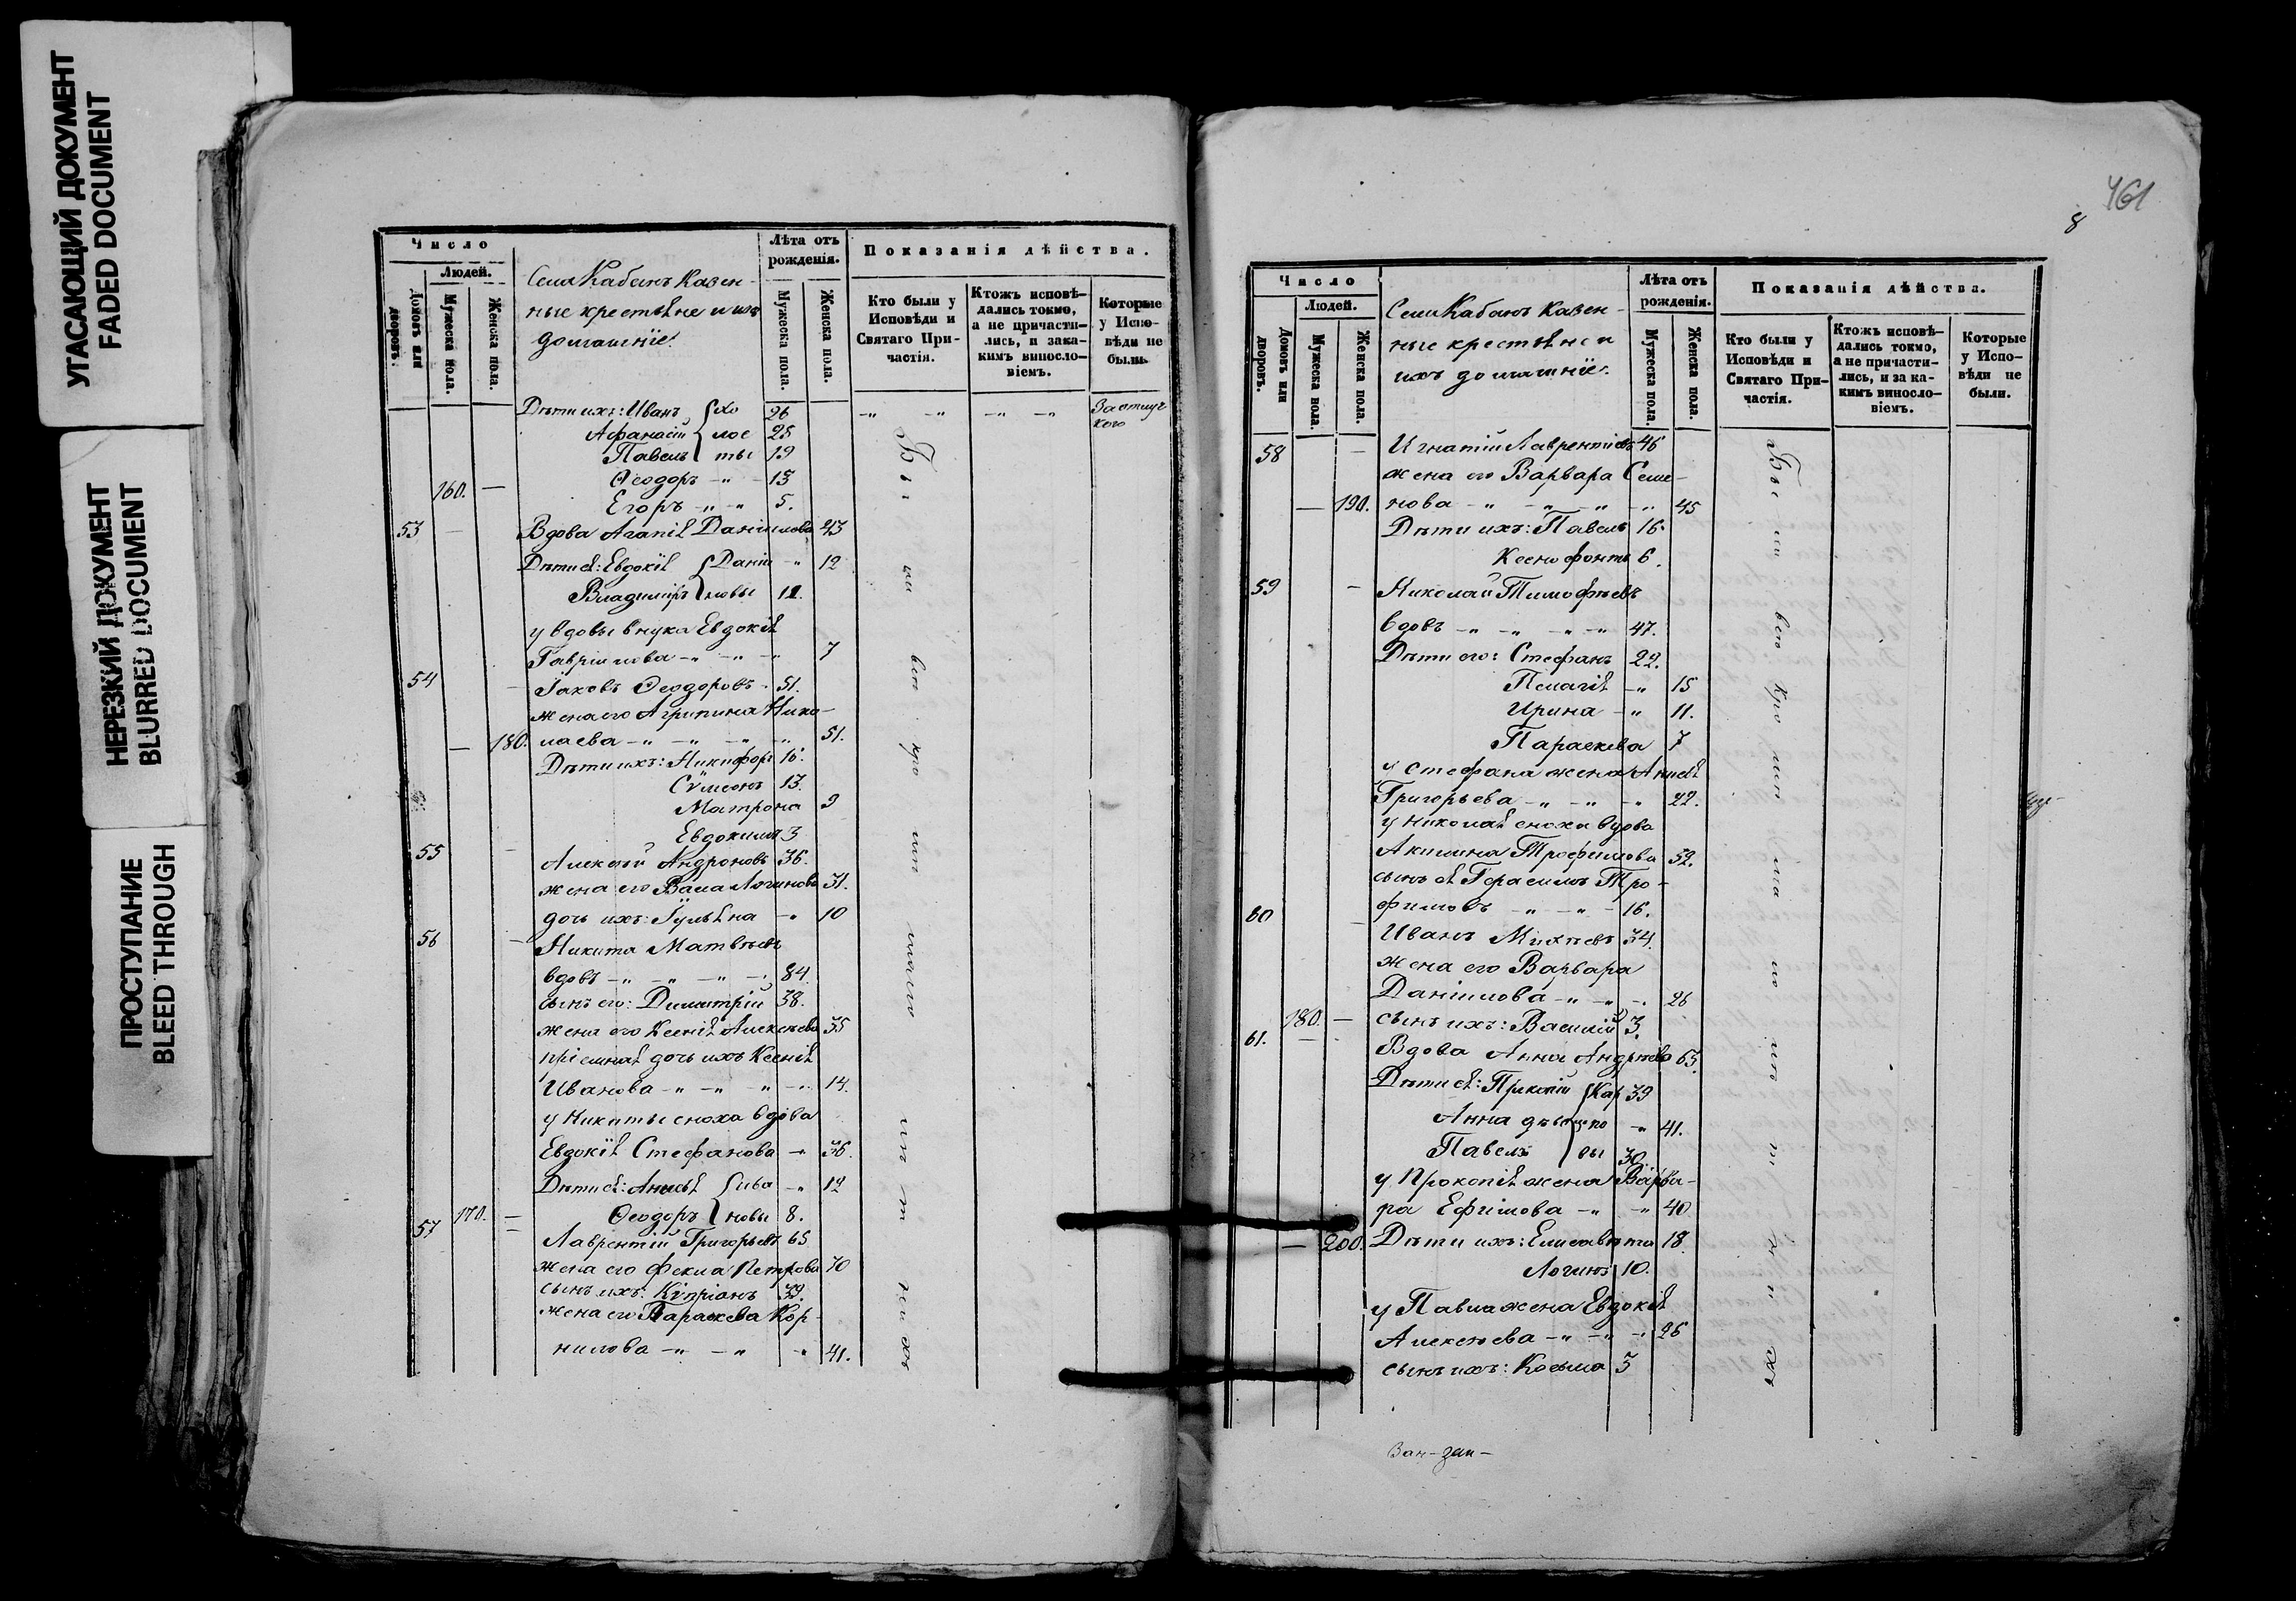 УГАСАЮЩИЙ ДОКУМЕНТ
FADED DOCUMENT
НЕРЕЗКИЙ ДОКУМЕНТ
BLURRED DOCUMENT
ПРОСТУПАНИЕ
BLEED THROUGH
Число
Людей.
Домовъ или дворовъ.
Мужеска пола.
Женска пола.
Села Кабанъ Казен-
ные крестьяне и ихъ
домашніе.
Лѣта отъ рожденія.
Мужеска пола.
Женска пола.
Показанія дѣйства.
Кто были у Исповѣди и Святаго Причастія.
Ктожъ исповѣдались токмо, а не причастились, и закакимъ винословіемъ.
Которые у Исповѣди не были.
Дѣти ихъ: Иванъ { хо 26
Афанасій { лос 25
Павелъ { ты 19
Ѳеодоръ 13
160. Егоръ 5.
53 Вдова Агапія Даніилова 43
Дѣти ея: Евдокія { Даніи 12
Владиміръ { ловы 12.
у вдовы внука Евдокія
Гавріилова 7
54 Іаковъ Ѳеодоровъ 51.
жена его Агрипина Нико-
180. лаева 51.
Дѣти ихъ: Никифоръ 16.
Сѵмеонъ 13.
Матрона 9
Евдокимъ 3
55 Алексій Андроновъ 36.
жена его Васа Логинова 31.
дочь ихъ: Іульяна 10
56 Никита Матвѣевъ
вдовъ 84.
сынъ его: Димитрій 38.
жена его Ксенія Алексѣева 35
пріемная дочь ихъ Ксенія
Иванова 14.
у Никиты сноха вдова
Евдокія Стефанова 36.
Дѣти ея: Анисья { Ива 12
170. Ѳеодоръ { новы 8.
57 Лаврентій Григорьевъ 65
жена его Фекла Петрова 70
сынъ ихъ: Кѵпріанъ 39.
жена его Параскева Кор-
нилова 41.
461
8
Число
Людей.
Домовъ или дворовъ.
Мужеска пола.
Женска пола.
Села Кабанъ Казен-
ные крестьяне и
ихъ домашніе.
Лѣта отъ рожденія.
Мужеска пола.
Женска пола.
Показанія дѣйства.
Кто были у Исповѣди и Святаго Причастія.
Ктожъ исповѣдались токмо, а не причастились, и за какимъ винословіемъ.
Которые у Исповѣди не были.
58 Игнатій Лаврентіевъ 46
жена его Варвара Семе-
190. нова 45
Дѣти ихъ: Павелъ 16.
Ксенофонтъ 6.
59 Николай Тимофѣевъ
вдовъ 47.
Дѣти его: Стефанъ 22.
Пелагія 15
Ирина 11.
Параскева 7
у Стефана жена Анисья
Григорьева 22.
у Николая сноха вдова
Акилина Трофимова 52.
сынъ ея Герасимъ Тро-
фимовъ 16.
60 Иванъ Михѣевъ 34.
жена его Варвара
Даніилова 26
180. сынъ ихъ: Василій 3.
61. Вдова Анна Андрѣева 65.
Дѣти ея: Прокопій { Кар 39
Анна дѣвица { по 41.
Павелъ { вы 30
у Прокопія жена Варва-
ра Ефимова 40
200. Дѣти ихъ: Елисавета 18.
Логинъ 10.
у Павла жена Евдокія
Алексѣева 26
сынъ ихъ: Косьма 5